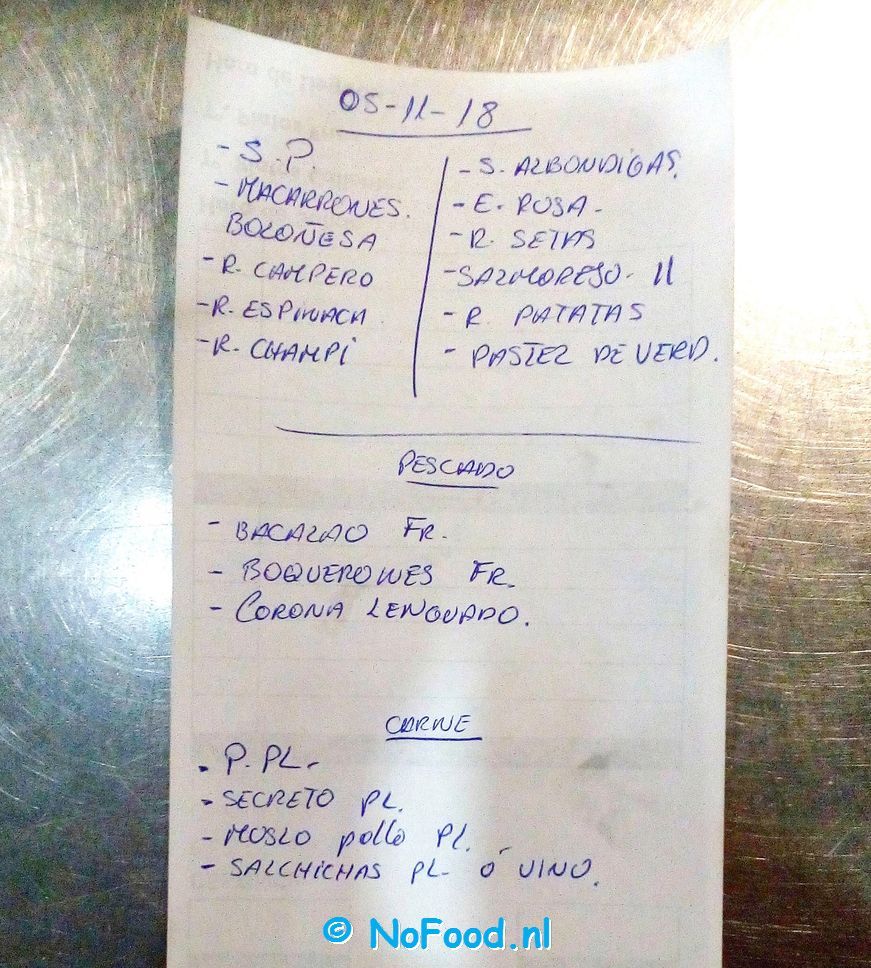 05-11-18
- S.P.
- MACARRONES.
BOLOÑESA
- R. CAMPERO
- R. ESPINACA.
- R. CHAMPI
- S. ALBONDIGAS.
- E. RUSA-
- R. SETAS
- SALMOREJO- 11
- R. PATATAS
- PASTEL DE VERD.
PESCADO
- BACALAO FR.
- BOQUERONES FR.
- CORONA LENGUADO.
CARNE
- P. PL.
- SECRETO PL.
- MUSLO pollo PL.
- SALCHICHAS PL- Ó VINO.
© NoFood.nl